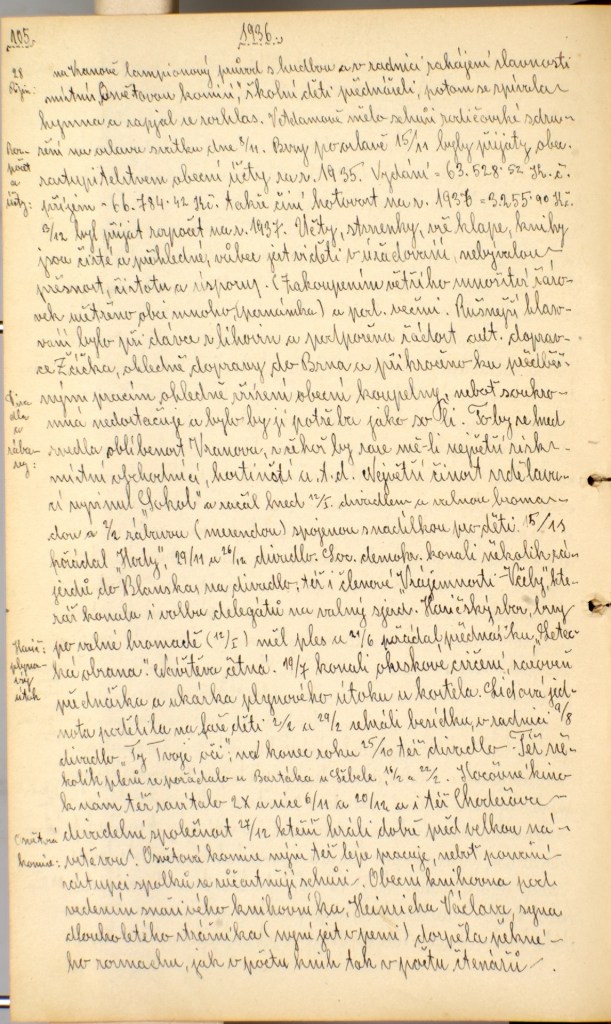 105.
1936.
28
Říjn:
na Vranově lampionový průvod s hudbou a v radnici zahájení slavnosti
místní Osvětovou komisí; školní děti přednášeli, potom se zpívala
hymna a zapjal se rozhlas. V Adamově mělo schůzi rodičovské sdru-
žení na oslavu svátku dne 8/11. Brzy po oslavě 15/11 byly přijaty obec.
Roz-
počet
a
účty:
zastupitelstvem obecní účty za r. 1935. Vydání = 63.528·52 Kč.
příjem = 66.784·42 Kč. takže činí hotovost na r. 1936 = 3.255·90 Kč.
3/12 byl přijat rozpočet na r. 1937. Účty, strženky, vše klape, knihy
jsou čisté a přehledné, vůbec jest viděti v úřadování, nebyvalou
přesnost, čistotu a úspory. (Zakoupením většího množství žáro-
vek ušetřeno obci mnoho, (poznámka) a pod. věcmi. Rušnější hlaso-
vání bylo při dávce z lihovin a podpořena žádost aut. doprav-
ce Žáčka, ohledně dopravy do Brna a přikročeno ku předběž-
ným pracím ohledně zřízení obecní koupelny, neboť soukro-
Diva
dla
a
zába-
vy:
má nedostačuje a bylo by jí potřeba jako soli. To by se hned
zvedla oblíbenost Vranova, z něhož by zase mě-li největší zisk:
místní obchodníci, hostinští a.t.d. Největší činost vzdělava-
cí vyvinul „Sokol" a začal hned 12/I. divadlem a valnou hroma-
dou a 2/2 zábavou (merendou) spojenou s nadílkou pro děti. 15/11
pořádal „Hody", 29/11 a 26/12 divadlo. Soc. demokr. konali několik zá-
jezdů do Blanska, na divadlo, též i členové „Vzájemnosti-Včely", kte-
rář konala i volbu delegátů na valný sjezd. Hasičský sbor, brzy
Hasič:
plyno-
vý
útok
po valné hromadě (12/I) měl ples a 21/6 pořádal přednášku „Letec-
ká obrana". Návštěva četná. 19/7 konali okrskové cvičení, zároveň
přednáška a ukázka plynového útoku u kostela. Lidová jed-
nota podělila na faře děti 2/2 a 29/2 sehráli besídku, v radnici 9/8
divadlo „Ty Tvoje oči"; na konec roku 25/10 též divadlo. Též ně-
kolik plesů se pořádalo u Bartáka u Sěbele, 16/2 a 22/2. Kočovné kino
k nám též zavítalo 2x a sice 6/11 a 20/12 a i též Choděrova
divadelní společnost 27/12 kteří hráli dobře před velkou ná-
Osvětová
komise:
vštěvou. Osvětová komise nyní též lépe pracuje, neboť pozvaní
zástupci spolků se zúčastňují schůzí. Obecní knihovna pod
vedením snaživého knihovníka, Heinricha Václava, syna
dlouholetého strážníka (nyní jest v pensi) dospěla pěkné-
ho rozmachu, jak v počtu knih tak v počtu čtenářů.